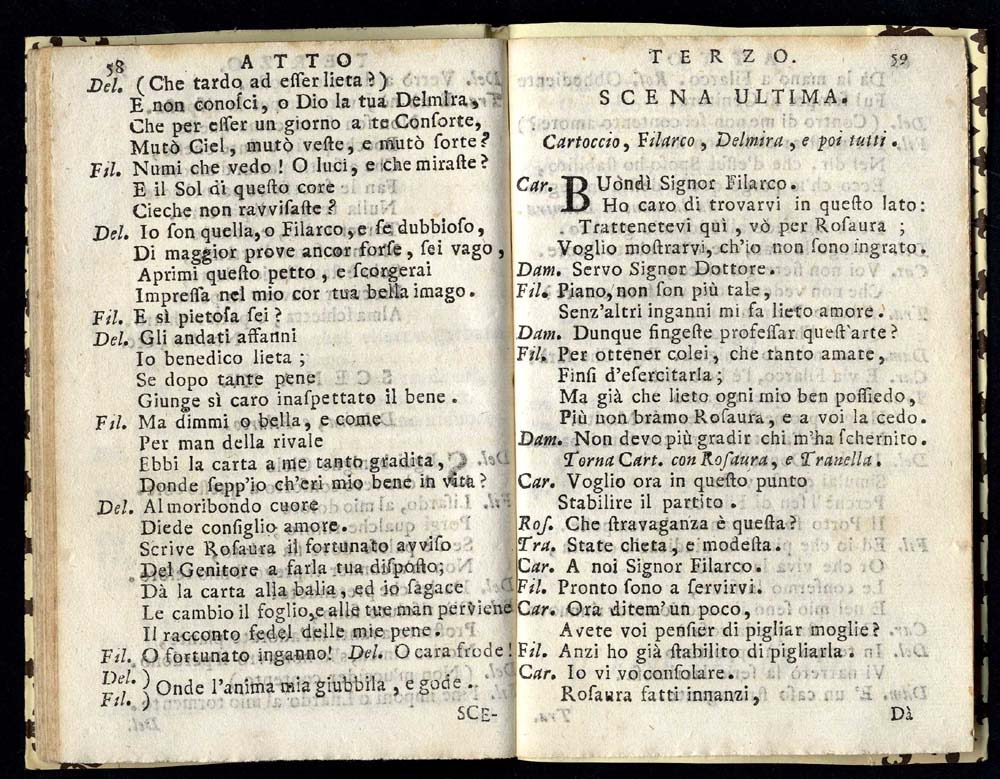 58 ATTO
Del. (Che tardo ad eſſer lieta?)
E non conoſci, o Dio la tua Delmira,
Che per eſſer un giorno a te Conſorte,
Mutò Ciel, mutò veſte, e mutò ſorte?
Fil. Numi che vedo! O luci, e che miraſte?
E il Sol di queſto core
Cieche non ravviſaſte?
Del. Io ſon quella, o Filarco, e ſe dubbioſo,
Di maggior prove ancor forſe, ſei vago,
Aprimi queſto petto, e ſcorgerai
Impreſſa nel mio cor tua bella imago.
Fil. E sì pietoſa ſei?
Del. Gli andati affanni
Io benedico lieta;
Se dopo tante pene
Giunge sì caro inaſpettato il bene.
Fil. Ma dimmi o bella, e come
Per man della rivale
Ebbi la carta a me tanto gradita,
Donde ſepp'io ch'eri mio bene in vita?
Del. Al moribondo cuore
Diede conſiglio amore.
Scrive Roſaura il fortunato avviſo
Del Genitore a farla tua diſpoſto;
Dà la carta alla balia, ed io ſagace
Le cambio il foglio, e alle tue man perviene
Il racconto fedel delle mie pene.
Fil. O fortunato inganno! Del. O cara frode!
Del. )
Fil. ) Onde l'anima mia giubbila, e gode.
SCE-
TERZO. 59
SCENA ULTIMA.
Cartoccio, Filarco, Delmira, e poi tutti.
Car. BUòndì Signor Filarco.
Ho caro di trovarvi in queſto lato:
Trattenetevi quì, vò per Roſaura;
Voglio moſtrarvi, ch'io non ſono ingrato.
Dam. Servo Signor Dottore.
Fil. Piano, non ſon più tale,
Senz'altri inganni mi fa lieto amore.
Dam. Dunque fingeſte profeſſar queſt'arte?
Fil. Per ottener colei, che tanto amate,
Finſi d'eſercitarla;
Ma già che lieto ogni mio ben poſſiedo,
Più non bràmo Roſaura, e a voi la cedo.
Dam. Non devo più gradir chi m'ha ſchernito.
Torna Cart. con Roſaura, e Tranella.
Car. Voglio ora in queſto punto
Stabilire il partito.
Roſ. Che ſtravaganza è queſta?
Tra. State cheta, e modeſta.
Car. A noi Signor Filarco.
Fil. Pronto ſono a ſervirvi.
Car. Ora ditem' un poco,
Avete voi penſier di pigliar moglie?
Fil. Anzi ho già ſtabilito di pigliarla.
Car. Io vi vo conſolare.
Roſaura fatti innanzi,
Dà